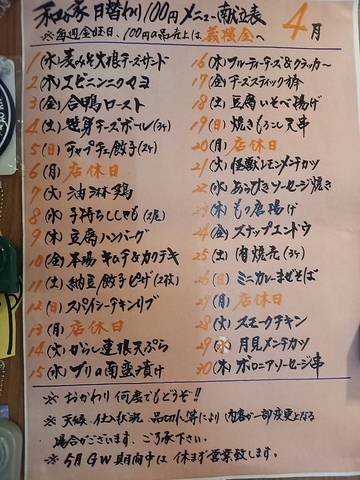 和が家 日替わり100円メニュー献立表 4月
※毎週金曜日、100円の品売上は義援金へ
1(水)麦みそ大根チーズサンド
2(木)エビニンニクマヨ
3(金)合鴨ロースト
4(土)笹身チーズボール(3ヶ)
5(日)チャプチェ餃子(2ヶ)
6(月)店休日
7(火)油淋鶏
8(水)子持ちししゃも(2尾)
9(木)豆腐ハンバーグ
10(金)本場キムチ&カクテキ
11(土)納豆餃子ピザ(2枚)
12(日)スパイシーチキンリブ
13(月)店休日
14(火)からし蓮根天ぷら
15(水)ブリの南蛮漬け
16(木)フルーティーチーズ&クラッカー
17(金)チーズスティック
18(土)豆腐いそべ揚げ
19(日)焼きもろこし天串
20(月)店休日
21(火)怪獣レモンメンチカツ
22(水)あらびきソーセージ焼き
23(木)もつ唐揚げ
24(金)スナップエンドウ
25(土)肉焼売(3ヶ)
26(日)ミニカレーまぜそば
27(月)店休日
28(火)スモークチキン
29(水)月見メンチカツ
30(木)ボロニアソーセージ串
※おかわり何度でもどうぞ!!
※天候、仕入状況、品切れ等により内容が一部変更となる
場合がございます、ご了承下さい。
※5月GW期間中は休まず営業致します。